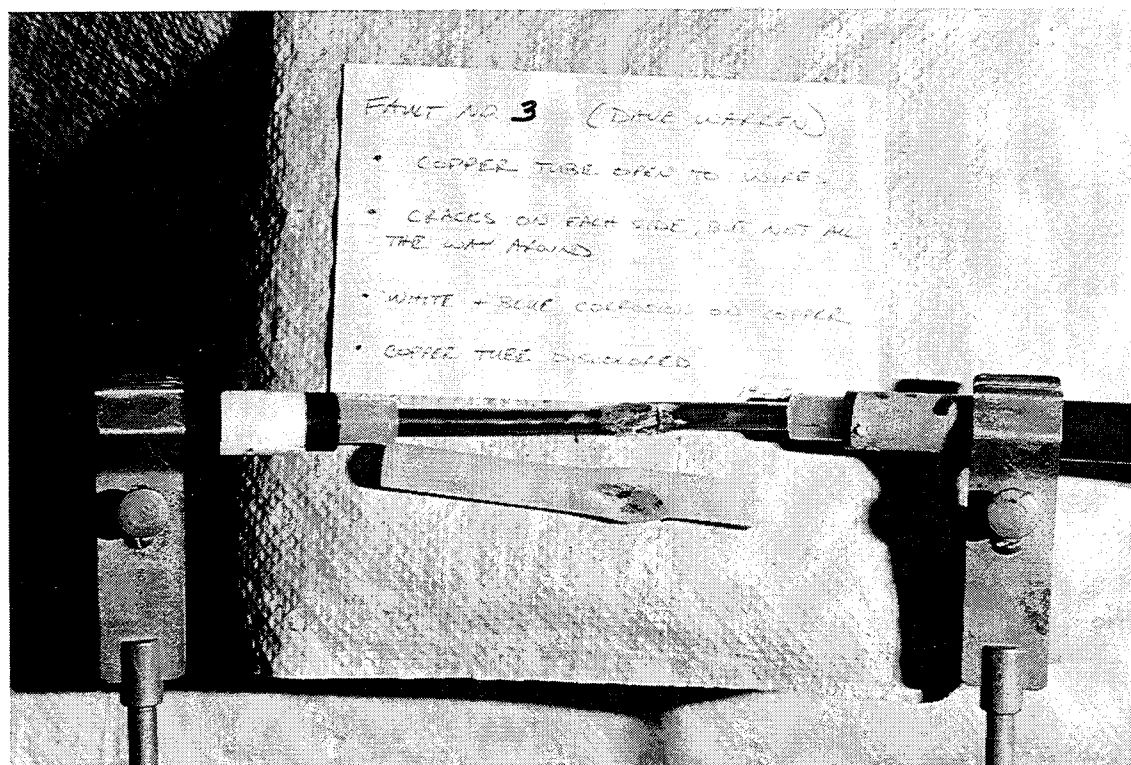 FAULT NO. 3 (DAVE WARREN)
• COPPER TUBE OPEN TO WIRE.
• CRACKS ON EACH SIDE, BUT NOT ALL
THE WAY AROUND
• WHITE + BLUE CORROSION ON COPPER
• COPPER TUBE DISCOLORED